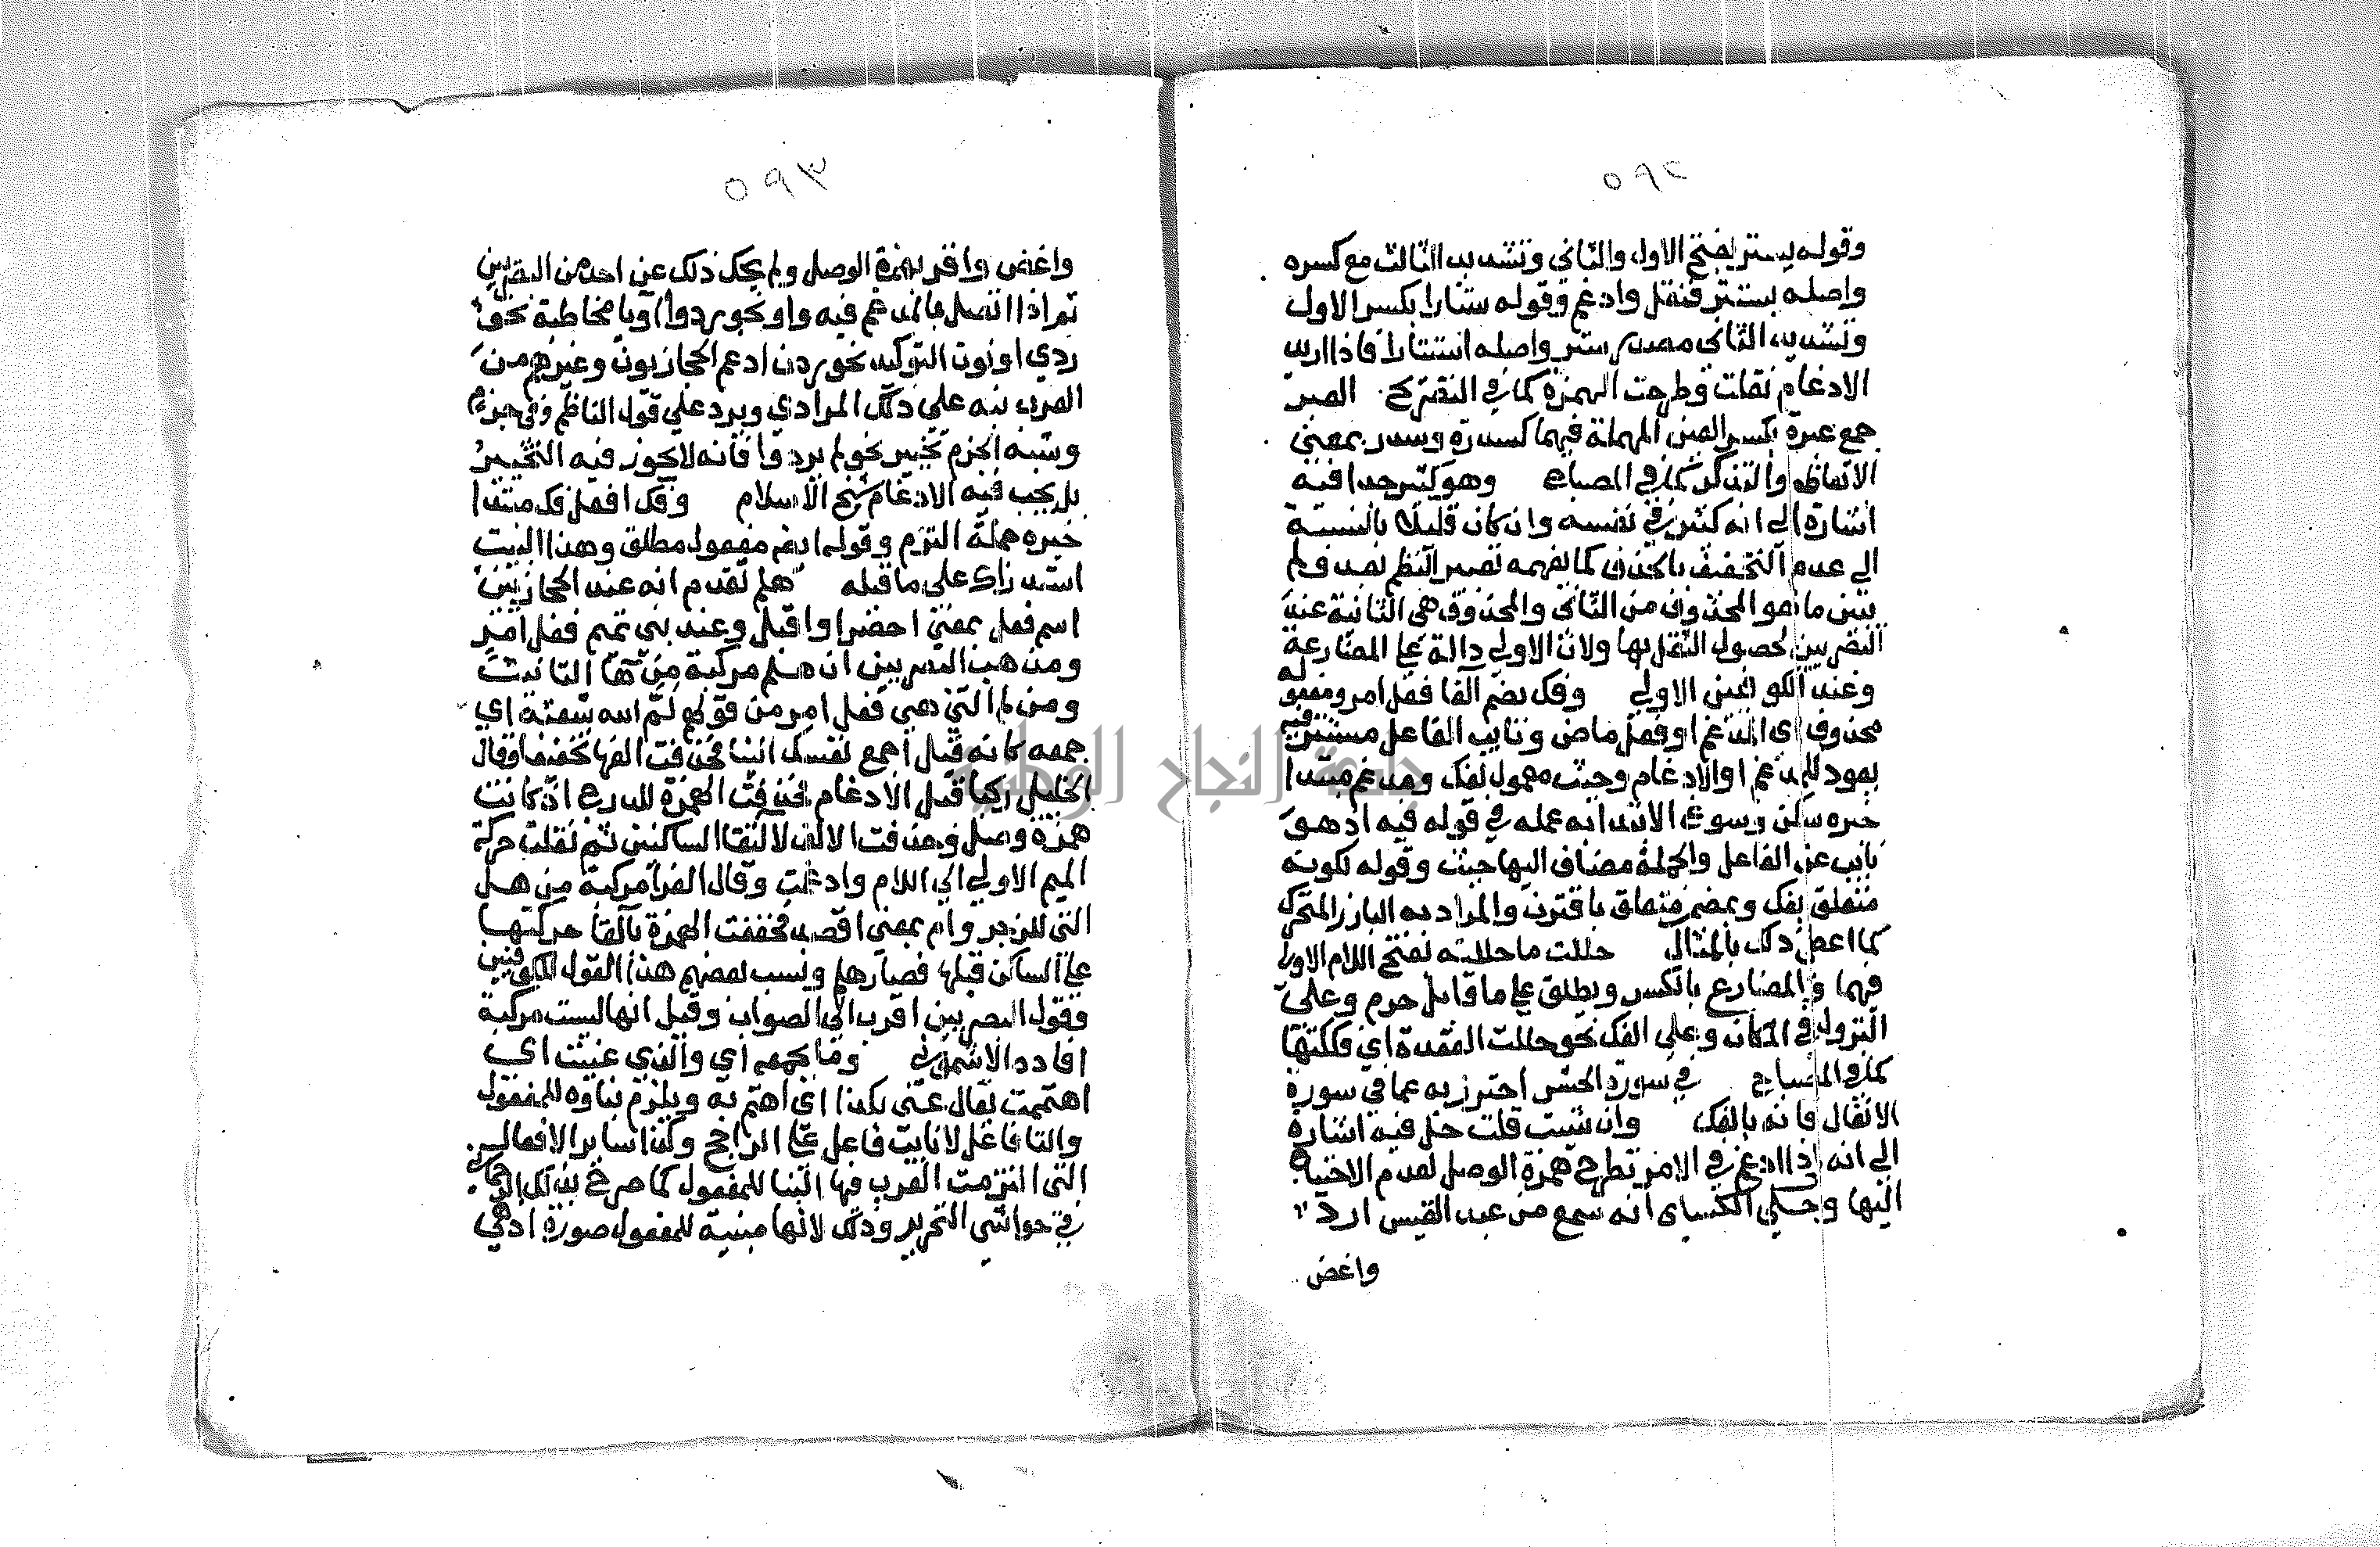 ٥٩٢
وقوله يستر بفتح الاول والثاني وتشديد الثالث مع كسره
واصله يستتر فنقل وادغم وقوله ستارا بكسر الاول
وتشديد الثاني مصدر ستر واصله استتارا فاذا اريد
الادغام نقلت وطرحت الهمزة كما في التصريح العبر
جمع عبرة بكسر العين المهملة فيهما كسدرة وسدر بمعنى
الاتعاظ والتذكر كما في المصباح وهو كثير جدا فيه
اشارة الى انه كثير في نفسه وان كان قليلا بالنسبة
الى عدم التخفيف بالحذف كما يفهمه تعبير النظم بقد ولم
يبين ما هو المحذوف من الثاني والمحذوف هي الثانية عند
البصريين لحصول الثقل بها ولان الاولى دالة على المضارعة
وعند الكوفيين الاولى وفك بضم الفا فعل امر ومفعوله
محذوف اي المدغم او فعل ماض ونايب الفاعل مستتر فيه
يعود للمدغم او الادغام وحيث معمول لفك ومدغم مبتدا
خبره سكن وسوغ الابتدا به عمله في قوله فيه اذ هو
نايب عن الفاعل والجملة مضاف اليها حيث وقوله لكونه
متعلق بفك وبمضمر متعلق باقترن والمراد به البارز المتحرك
كما اعطى ذلك بالمثال حللت ما حللته بفتح اللام الاولى
فيهما والمضارع بالكسر ويطلق على ما قابل حرم وعلى
النزول في المكان وعلى الفك نحو حللت العقدة اي فككتها
كما في المصباح في سورة الحشر احترز به عما في سورة
الانفال فانه بالفك وان شئت قلت حل فيه اشارة
الى انه اذا ادغم في الامر تطرح همزة الوصل لعدم الاحتياج
اليها وحكى الكساى انه سمع من عبد القيس ارد
واغض
٥٩٣
واغض وافر بهمزة الوصل ولم يحك ذلك عن احد من البصريين
ثم اذا اتصل بالمدغم فيه واو نحو ردوا او يا مخاطبة نحو
ردي او نون التوكيد نحو ردن ادغم الحجازيون وغيرهم من
العرب نبه على ذلك المرادي ويرد على قول الناظم وفي جزم
وشبه الجزم تخيير نحو لم يردوا فانه لا يجوز فيه التخيير
بل يجب فيه الادغام شيخ الاسلام وفك افعل فك مبتدا
خبره جملة التزم وقوله ادغم مفعول مطلق وهذا البيت
استدراك على ما قبله هلم تقدم انه عند الحجازيين
اسم فعل بمعنى احضر او اقبل وعند بني تميم فعل امر
ومذهب البصريين ان هلم مركبة من ها التانيث
ومن لم التي هي فعل امر من قولهم لم الله شعثه اي
جمعه كانه قيل اجمع نفسك الينا فحذفت الفها تخفيفا وقال
الخليل ركبا قبل الادغام فحذفت الهمزة للدرج اذ كانت
همزة وصل وحذفت الالف لالتقا الساكنين ثم نقلت حركة
الميم الاولى الى اللام وادغمت وقال الفرا مركبة من هل
التي للزجر وام بمعنى اقصد فخففت الهمزة بالقا حركتها
على الساكن قبلها فصار هلم ونسب بعضهم هذا القول للكوفيين
وقول البصريين اقرب الى الصواب وقيل انها ليست مركبة
افاده الاشموني وما بجمعه اي والذي عنيت اي
اهتممت يقال عنى بكذا اي اهتم به ويلزم بناوه للمفعول
والتا فاعل لا نايب فاعل على الراجح وكذا ساير الافعال
التي التزمت العرب فيها البنا للمفعول كما صرح بذلك
في حواشي التحرير وذلك لانها مبنية للمفعول صورة اذ هي